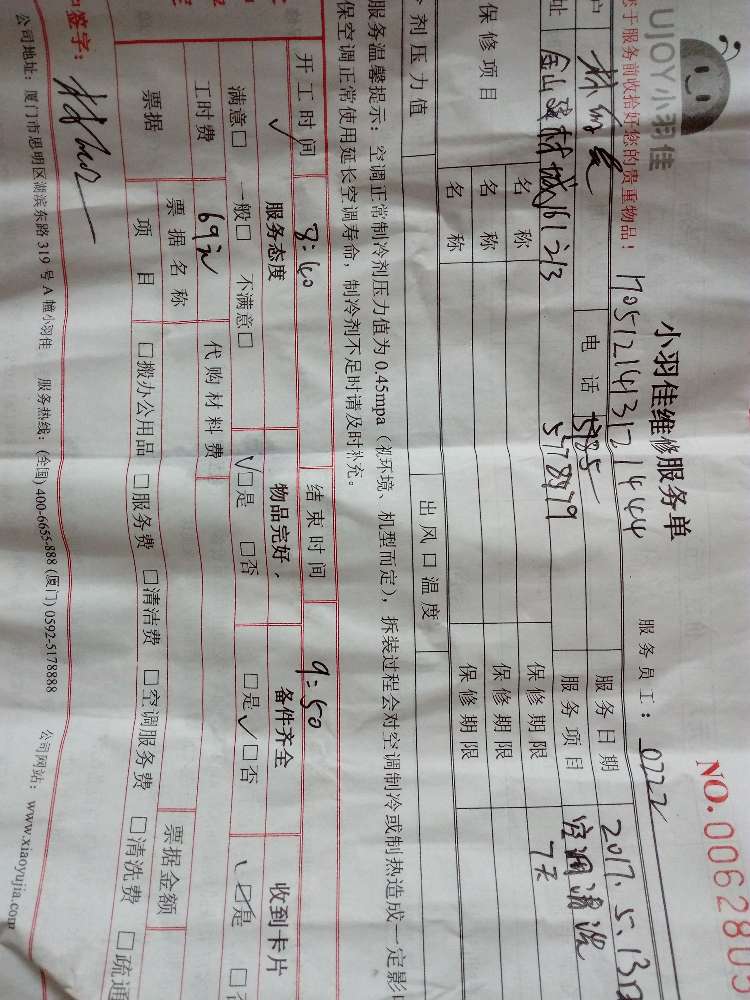 UJOY小羽佳
小羽佳维修服务单
NO.0062805
于服务前收拾好您的贵重物品！
170512141312 1444
服务员工：0722
户
电话 1585
578979
服务日期 2017.5.13日
址 金山建材城161213
服务项目 空调清洗
保修项目
名称
保修期限 7天
名称
保修期限
名称
保修期限
剂压力值
出风口温度
服务温馨提示：空调正常制冷剂压力值为0.45mpa（视环境、机型而定），拆装过程会对空调制冷或制热造成一定影
保空调正常使用延长空调寿命，制冷剂不足时请及时补充。
开工时间 8:40
结束时间 9:50
服务态度
物品完好、
备件齐全
收到卡片
满意□ 一般□ 不满意□
□是 □否
□是 □否
□是 □否
工时费 69元
代购材料费
票据
票据名称
票据金额
项目
□搬办公用品 □服务费 □清洁费 □空调服务费 □清洗费 □疏通
签字：
公司地址：厦门市思明区湖滨东路319号A幢小羽佳 服务热线：(全国) 400-6655-888 (厦门) 0592-5178888 公司网站：www.xiaoyujia.com